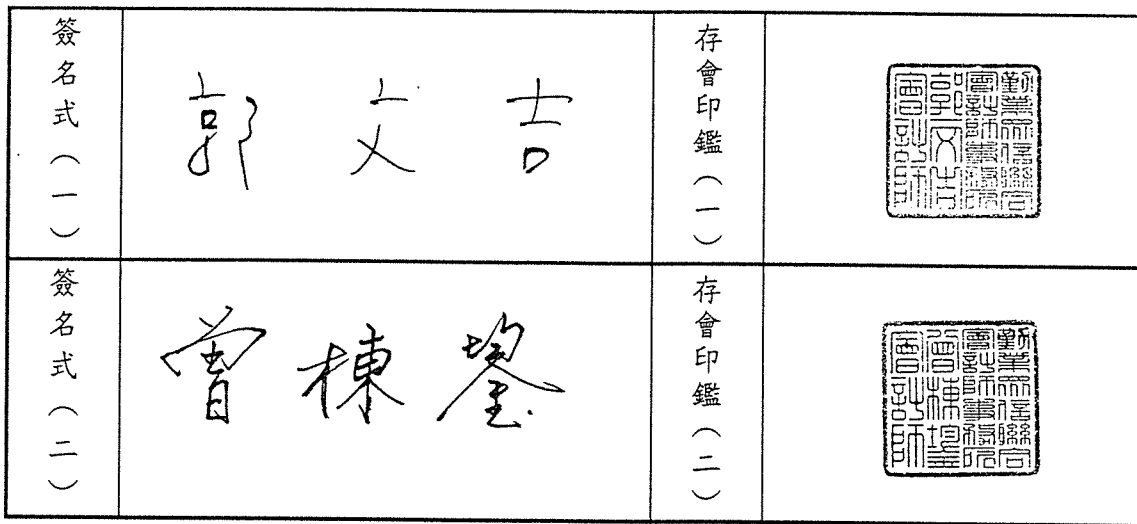 簽名式（一）
郭文吉
存會印鑑（一）
勤業眾信聯合
會計師事務所
郭文吉
會計師
簽名式（二）
曾棟鋆
存會印鑑（二）
勤業眾信聯合
會計師事務所
曾棟鋆
會計師